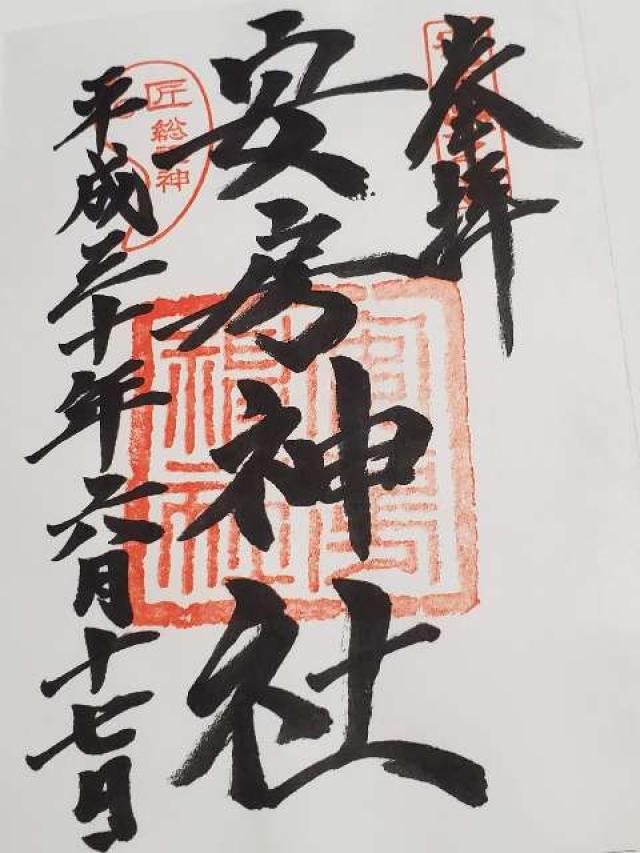 奉拝
安房神社
平成三十年六月十七日
匠総祖神
安房神社